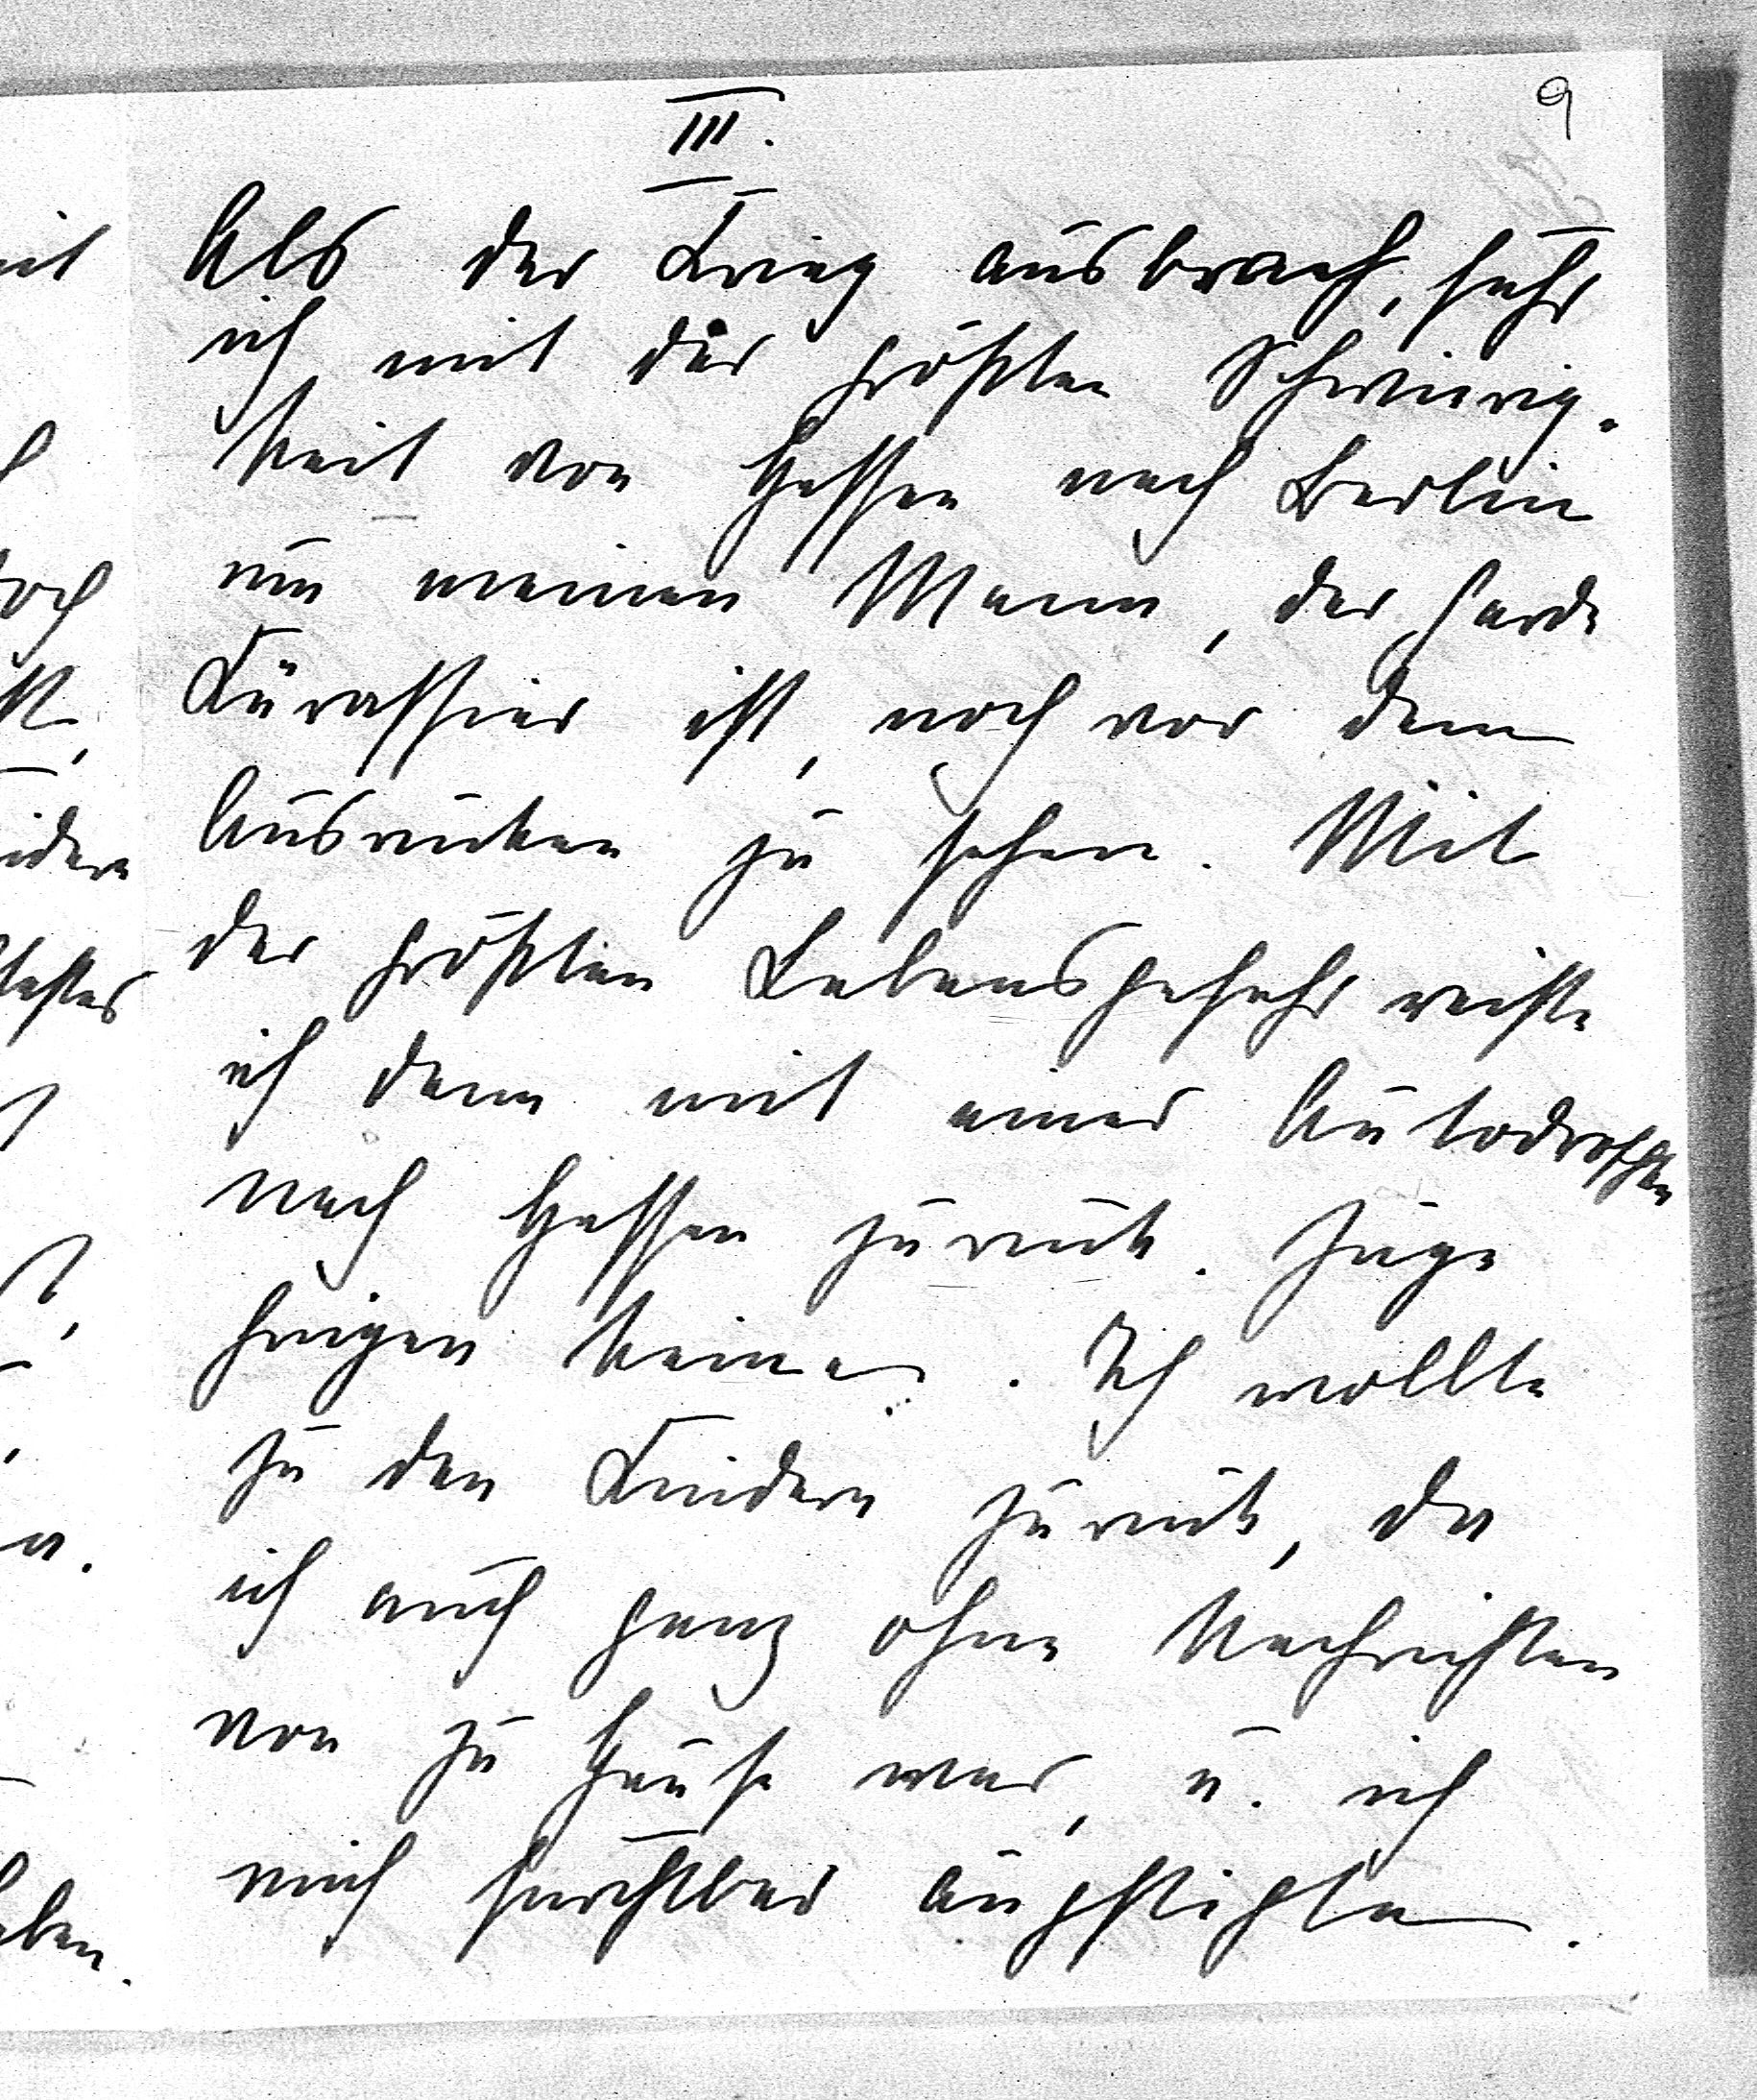 9
III.
Als der Krieg ausbrach, fuhr
ich mit der größten Schwierig-
keit von Hessen nach Berlin
um meinen Mann, der Garde
Kürassier ist, noch vor dem
Ausrücken zu sehen. Mit
der größten Lebensgefahr reiste
ich dann mit einer Autodroschke
nach Hessen zurück. Züge
gingen keine. Ich wollte
zu den Kindern zurück, da
ich auch ganz ohne Nachrichten
von zu Hause war, u. ich
mich furchtbar ängstigte.